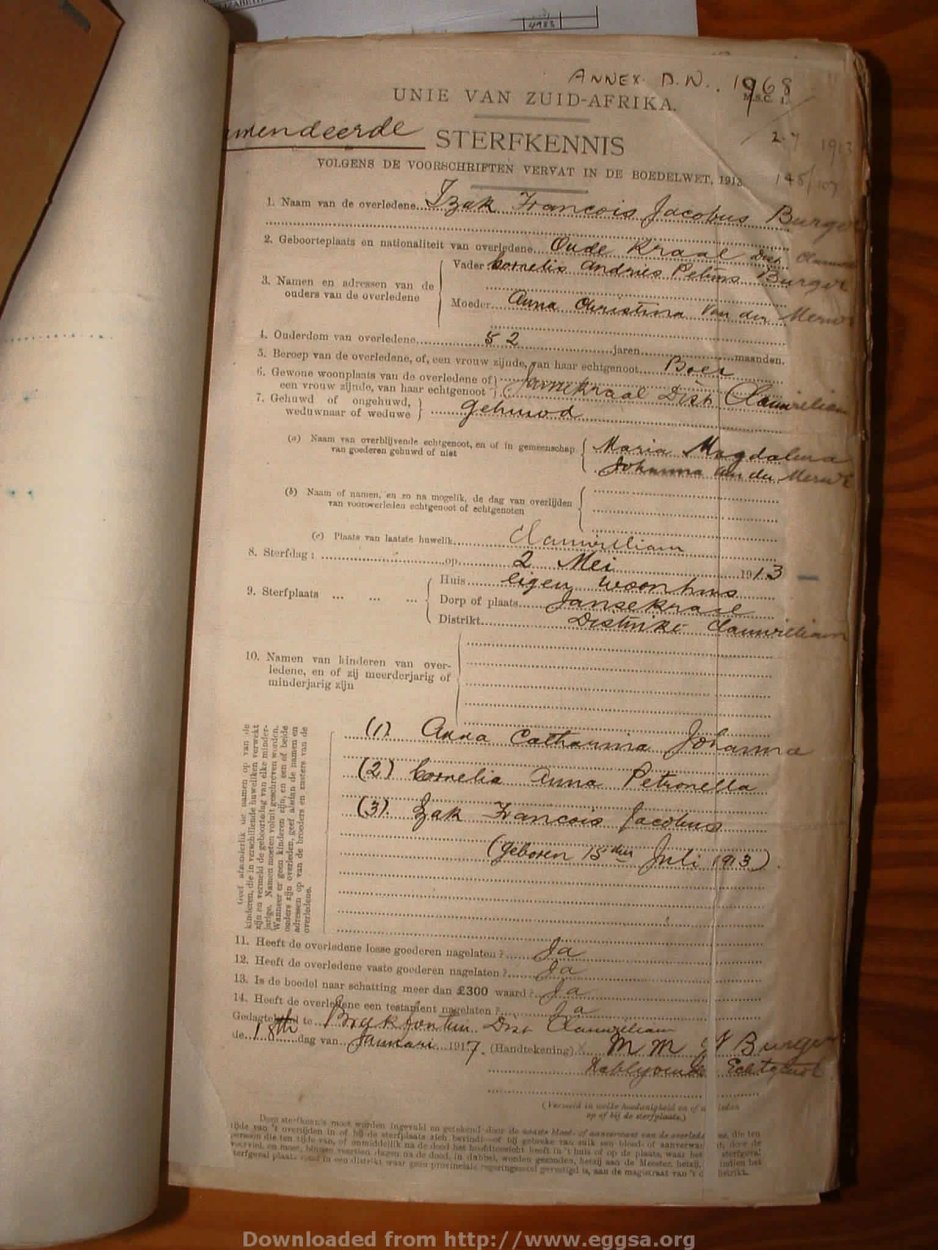 4983
ANNEX D.N. 1968
M.S.C. 1.
UNIE VAN ZUID-AFRIKA.
STERFKENNIS
VOLGENS DE VOORSCHRIFTEN VERVAT IN DE BOEDELWET, 1913
1. Naam van de overledene Izak Francois Jacobus Burger
2. Geboorteplaats en nationaliteit van overledene Oude Kraal Dist
3. Namen en adressen van de ouders van de overledene
Vader Cornelis Andries Petrus Burger
Moeder Anna Christina Van der Merwe
4. Ouderdom van overledene 52 jaren maanden.
5. Beroep van de overledene, of, een vrouw zijnde, van haar echtgenoot Boer
6. Gewone woonplaats van de overledene of een vrouw zijnde, van haar echtgenoot Dist Clanwilliam
7. Gehuwd of ongehuwd, weduwnaar of weduwe gehuwd
(a) Naam van overblijvende echtgenoot, en of in gemeenschap van goederen gehuwd of niet
Maria Magdalena
Johanna van der Merwe
(b) Naam of namen, en zo na mogelik, de dag van overlijden van vooroverleden echtgenoot of echtgenoten
(c) Plaats van laatste huwelik Clanwilliam
8. Sterfdag: op 2 Mei 1913
9. Sterfplaats
Huis eigen woonhuis
Dorp of plaats Jansekraal
Distrikt Distrikt Clanwilliam
10. Namen van kinderen van overledene, en of zij meerderjarig of minderjarig zijn
kinderen, die in verschillende huweliken verwekt
zijn en vermeld de geboortedag van elke minderjarige. Namen moeten voluit geschreven worden.
Wanneer er geen kinderen zijn, en een of beide
ouders zijn overleden, geef alsdan de namen en
adressen op van de broeders en zusters van de
overledene.
(1) Anna Catharina Johanna
(2) Cornelia Anna Petronella
(3) Izak Francois Jacobus
(geboren 15den Juli 1913)
11. Heeft de overledene losse goederen nagelaten? Ja
12. Heeft de overledene vaste goederen nagelaten? Ja
13. Is de boedel naar schatting meer dan £300 waard? Ja
14. Heeft de overledene een testament nagelaten? Ja
te Brakfontein Dist Clanwilliam
de 18th dag van Januari 1917. (Handtekening) M M J Burger
Echtgenoot
(Vermeld in welke hoedanigheid en of
op of bij de sterfplaats.)
Downloaded from http://www.eggsa.org